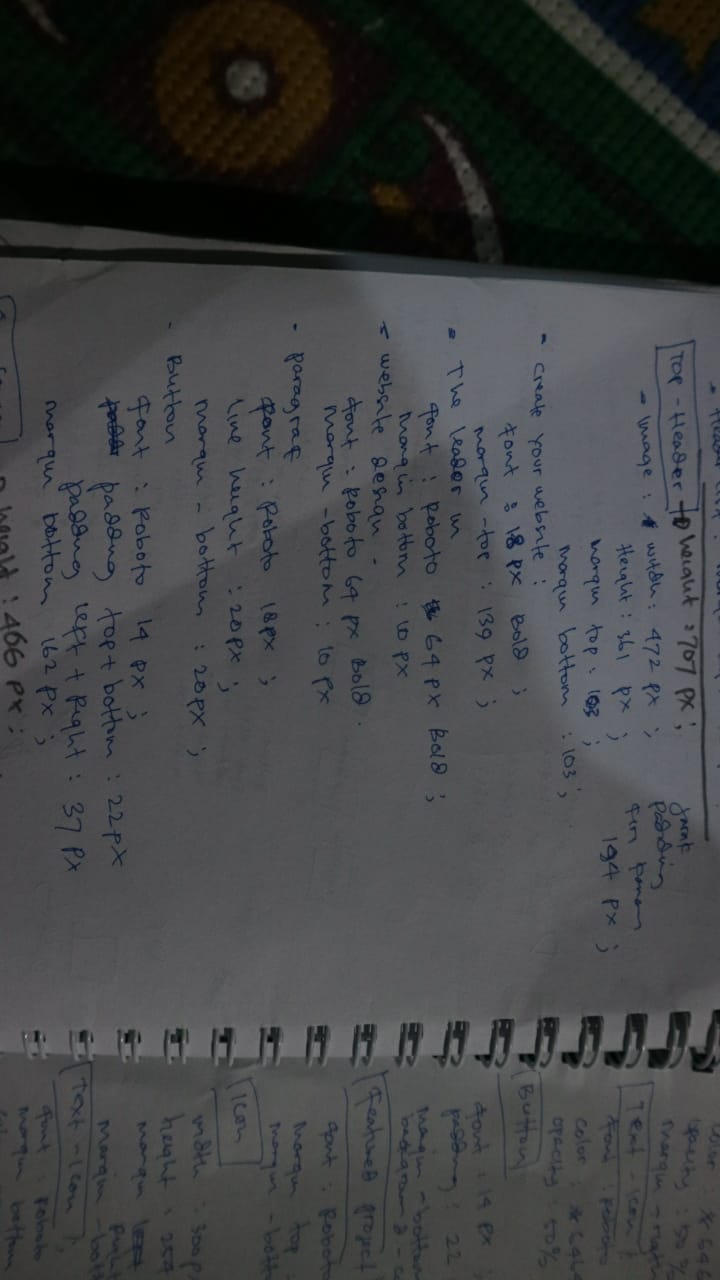 Top-Header → height : 707 px ;
- Image : width : 472 px ;
Height : 361 px ;
margin top : 103 ;
margin bottom : 103 ;
Jarak
padding
kiri kanan
194 px ;
- Create your website :
font : 18 px Bold ;
margin-top : 139 px ;
- The leader in
font : Roboto 64 px Bold ;
Margin bottom : 10 px
- website design -
font : Roboto 64 px Bold .
Margin-bottom : 10 px
- paragraf
font : Roboto 18px ;
line height : 28px ;
margin-bottom : 20px ;
- Button
font : Roboto 14 px ;
padding top + bottom : 22px
padding left + Right : 37 px
margin bottom 162 px ;
height : 466 px ;
opacity : 50%
Text-Icon
font : Roboto
color :
opacity : 50%
Button
font : 14 px
padding : 22
margin-bottom
Featured project
font : Roboto
margin top
margin-bott
Icon
width : 300p
height :
margin Right
margin-bott
Text-Icon
font : Roboto
margin bottom